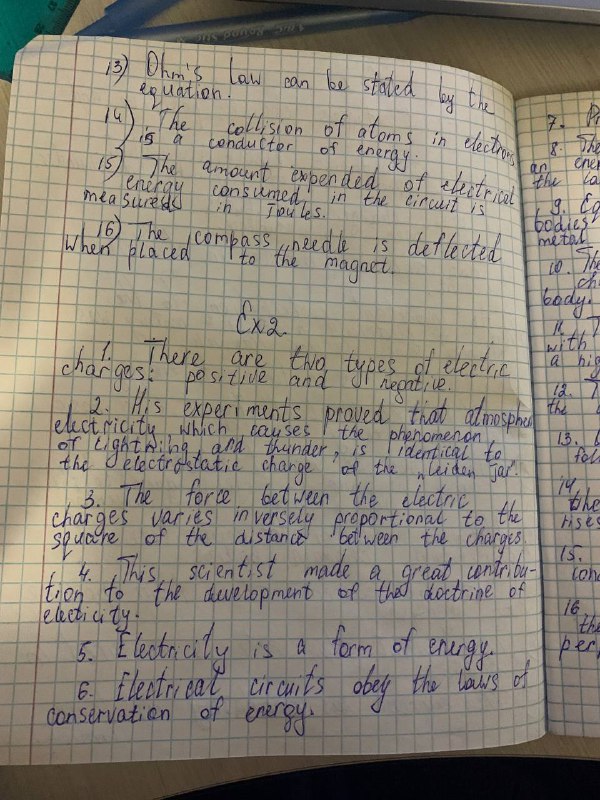 13) Ohm's law can be stated by the
equation.
14) The collision of atoms in electrons
is a conductor of energy.
15) The amount expended of electrical
energy consumed in the circuit is
measured in Joules.
16) The compass needle is deflected
when placed to the magnet.
Ex2.
1. There are two types of electric
charges: positive and negative.
2. His experiments proved that atmospheri
electricity which causes the phenomenon
of lightning and thunder, is identical to
the electrostatic charge of the "Leiden jar.
3. The force between the electric
charges varies inversely proportional to the
square of the distance between the charges
4. This scientist made a great contribu-
tion to the development of the doctrine of
electicity.
5. Electricity is a form of energy.
6. Electrical circuits obey the laws of
conservation of energy.
7.
8. The
an ener
the la
9.
bodies
metal
10. The
cha
body.
11.
with
a hig
12.
the
13.
foll
14.
the
rises
15.
con
16
the
per